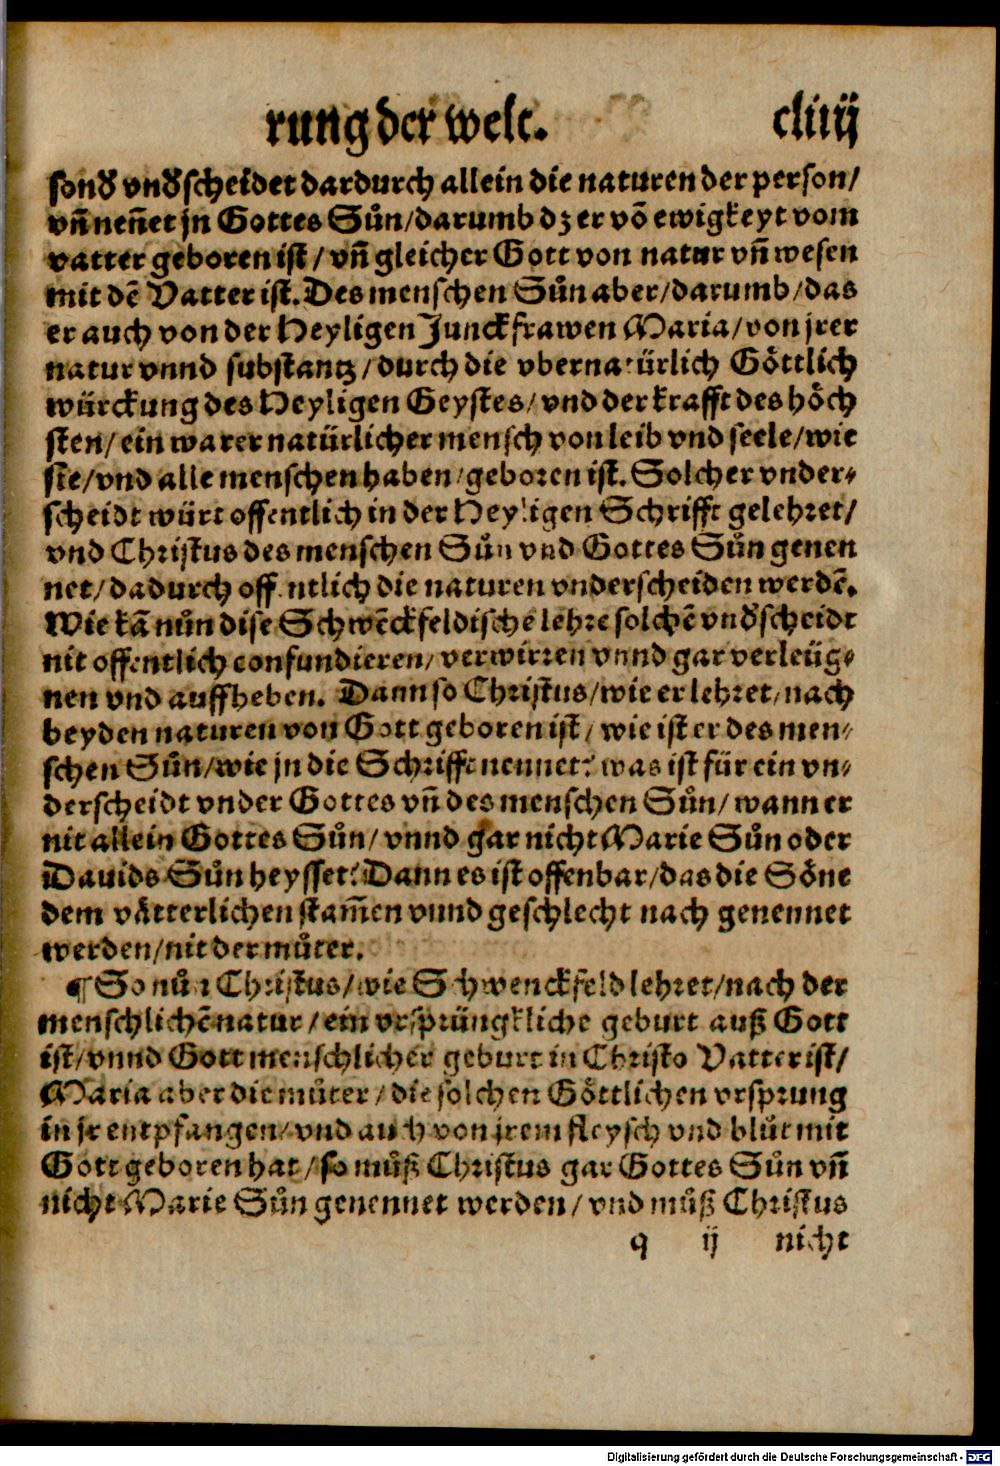 rung der welt. cliiij
sond̛ vnd̛scheidet dardurch allein die naturen der person/
vñ neñet jn Gottes Sůn/darumb dz er võ ewigkeyt vom
vatter geboren ist/ vñ gleicher Gott von natur vñ wesen
mit dẽ Vatter ist. Des menschen Sůn aber/darumb/das
er auch von der Heyligen Junckfrawen Maria/von jrer
natur vnnd substantz/durch die vbernatürlich Göttlich
würckung des Heyligen Geystes/ vnd der krafft des höch
sten/ein warer natürlicher mensch von leib vnd seele/wie
sie/vnd alle menschen haben/geboren ist. Solcher vnder-
scheidt würt offentlich in der Heyligen Schrifft gelehret/
vnd Christus des menschen Sůn vnd Gottes Sůn genen
net/dadurch offentlich die naturen vnderscheiden werdẽ.
Wie kã nůn dise Schwẽckfeldische lehre solchẽ vnd̛scheidt
nit offentlich confundieren/verwirren vnnd gar verleüg-
nen vnd auffheben. Dann so Christus/wie er lehret/nach
beyden naturen von Gott geboren ist/ wie ist er des men-
schen Sůn/wie jn die Schrifft nennet? was ist für ein vn-
derscheidt vnder Gottes vñ des menschen Sůn/ wann er
nit allein Gottes Sůn/ vnnd gar nicht Marie Sůn oder
Dauids Sůn heysset? Dann es ist offenbar/das die Söne
dem vätterlichen stam̃en vnnd geschlecht nach genennet
werden/nit der můter.
¶ So nůn Christus/wie Schwenckfeld lehret/nach der
menschlichẽ natur/ein vrsprüngkliche geburt auß Gott
ist/vnnd Gott menschlicher geburt in Christo Vatter ist/
Maria aber die můter/die solchen Göttlichen vrsprung
in jr entpfangen/vnd auch von jrem fleysch vnd blůt mit
Gott geboren hat/so můß Christus gar Gottes Sůn vñ
nicht Marie Sůn genennet werden/ vnd můß Christus
q ij nicht
Digitalisierung gefördert durch die Deutsche Forschungsgemeinschaft - DFG